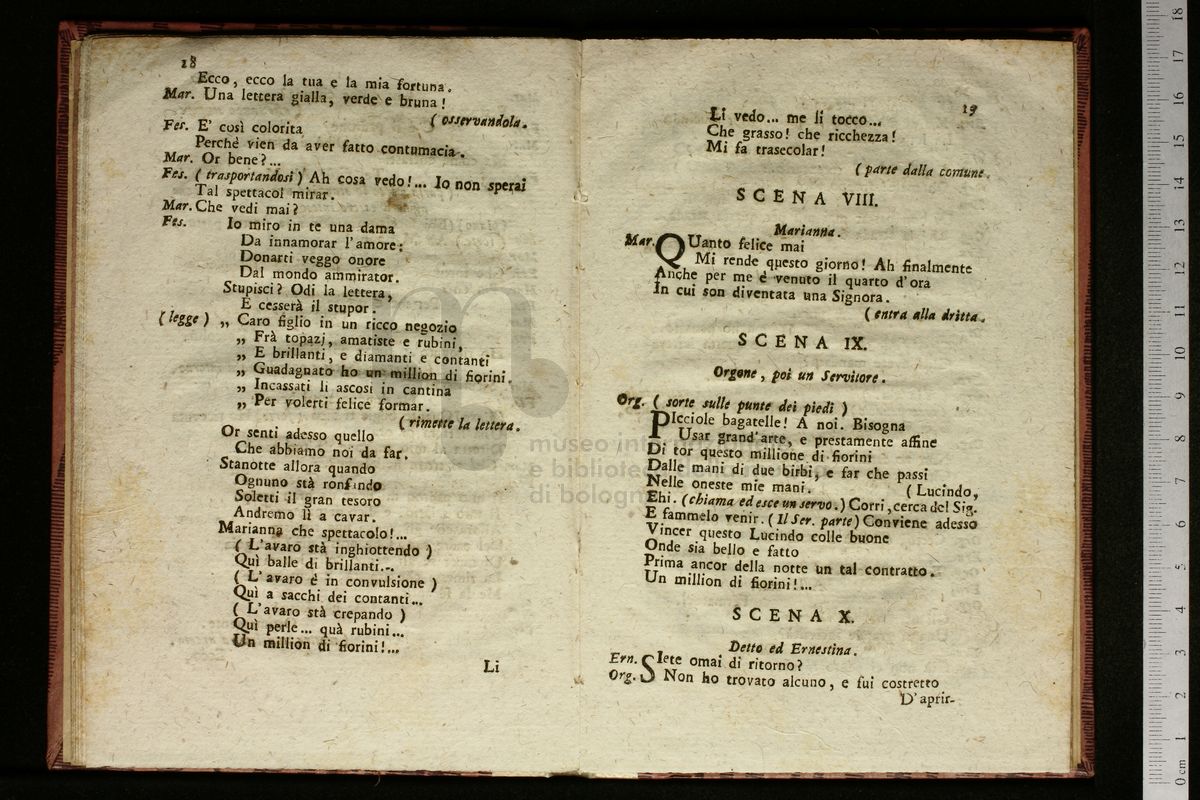 18
Ecco, ecco la tua e la mia fortuna.
Mar. Una lettera gialla, verde e bruna!
( osservandola.
Fes. E' così colorita
Perchè vien da aver fatto contumacia.
Mar. Or bene?...
Fes. ( trasportandosi ) Ah cosa vedo!... Io non sperai
Tal spettacol mirar.
Mar. Che vedi mai?
Fes. Io miro in te una dama
Da innamorar l'amore:
Donarti veggo onore
Dal mondo ammirator.
Stupisci? Odi la lettera,
E cesserà il stupor.
( legge ) „ Caro figlio in un ricco negozio
„ Frà topazj, amatiste e rubini,
„ E brillanti, e diamanti e contanti
„ Guadagnato ho un million di fiorini.
„ Incassati li ascosi in cantina
„ Per volerti felice formar.
( rimette la lettera.
Or senti adesso quello
Che abbiamo noi da far.
Stanotte allora quando
Ognuno stà ronfando
Soletti il gran tesoro
Andremo lì a cavar.
Marianna che spettacolo!...
( L'avaro stà inghiottendo )
Quì balle di brillanti...
( L'avaro è in convulsione )
Quì a sacchi dei contanti...
( L'avaro stà crepando )
Quì perle... quà rubini...
Un million di fiorini!...
Li
19
Li vedo... me li tocco...
Che grasso! che ricchezza!
Mi fa trasecolar!
( parte dalla comune.
SCENA VIII.
Marianna.
Mar. QUanto felice mai
Mi rende questo giorno! Ah finalmente
Anche per me è venuto il quarto d'ora
In cui son diventata una Signora.
( entra alla dritta.
SCENA IX.
Orgone, poi un Servitore.
Org. ( sorte sulle punte dei piedi )
PIcciole bagatelle! A noi. Bisogna
Usar grand'arte, e prestamente affine
Di tor questo millione di fiorini
Dalle mani di due birbi, e far che passi
Nelle oneste mie mani. ( Lucindo,
Ehi. (chiama ed esce un servo.) Corri, cerca del Sig.
E fammelo venir. ( Il Ser. parte) Conviene adesso
Vincer questo Lucindo colle buone
Onde sia bello e fatto
Prima ancor della notte un tal contratto.
Un million di fiorini!...
SCENA X.
Detto ed Ernestina.
Ern. SIete omai di ritorno?
Org. Non ho trovato alcuno, e fui costretto
D'aprir-
museo
e bibliote
di bologn